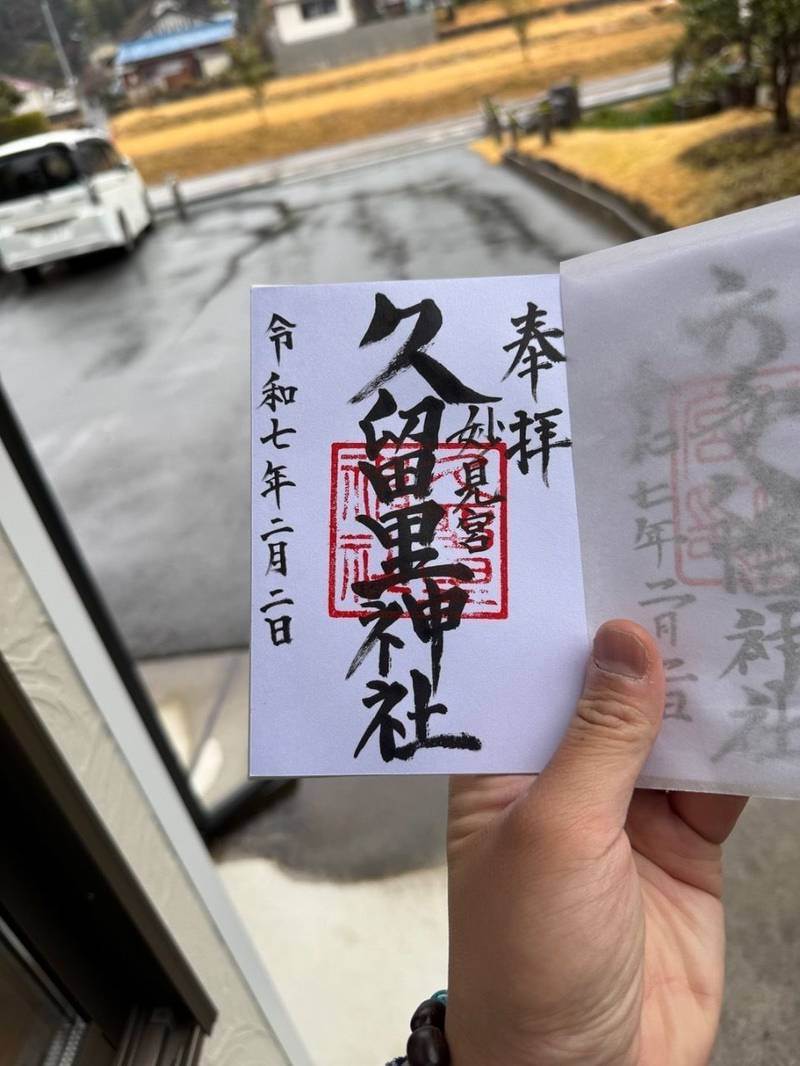 奉拝
妙見宮
久留里神社
令和七年二月二日
神社
七年二月二日